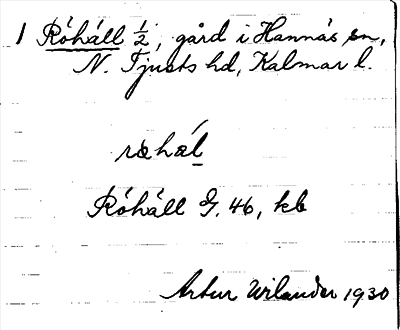 1 Röhäll 1/2, gård i Hannäs sn,
N. Tjusts hd, Kalmar l.
ræhæl
Röhäll G. 46, kb
Artur Wilander 1930